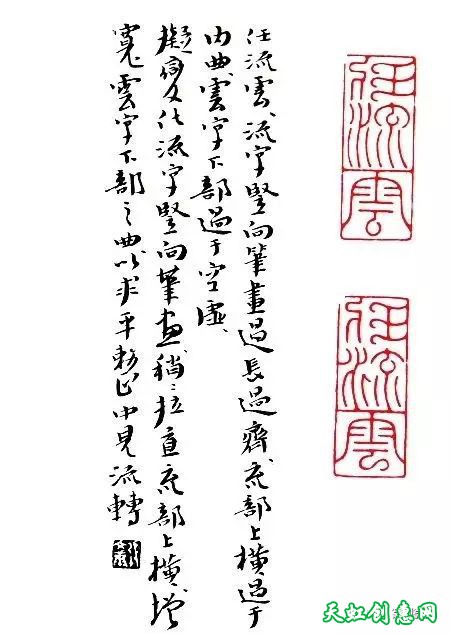 任流雲、流字竪向筆畫過長過齊、底部上橫過于
内曲、雲字下部過于空虛、
擬變任流字竪向筆畫稍〻拉直底部上橫、增
寬雲字下部之曲以求平整中見流轉
任流雲
任流雲
天虹创意网